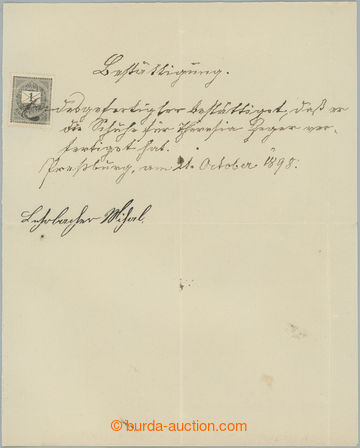 Bestättigung.
Endesgefertigter bestättiget, daß er
die Schuhe für Theresia Heger ver-
fertiget hat.
Preßburg, am 21. October 1898.
Mihal
© burda-auction.com